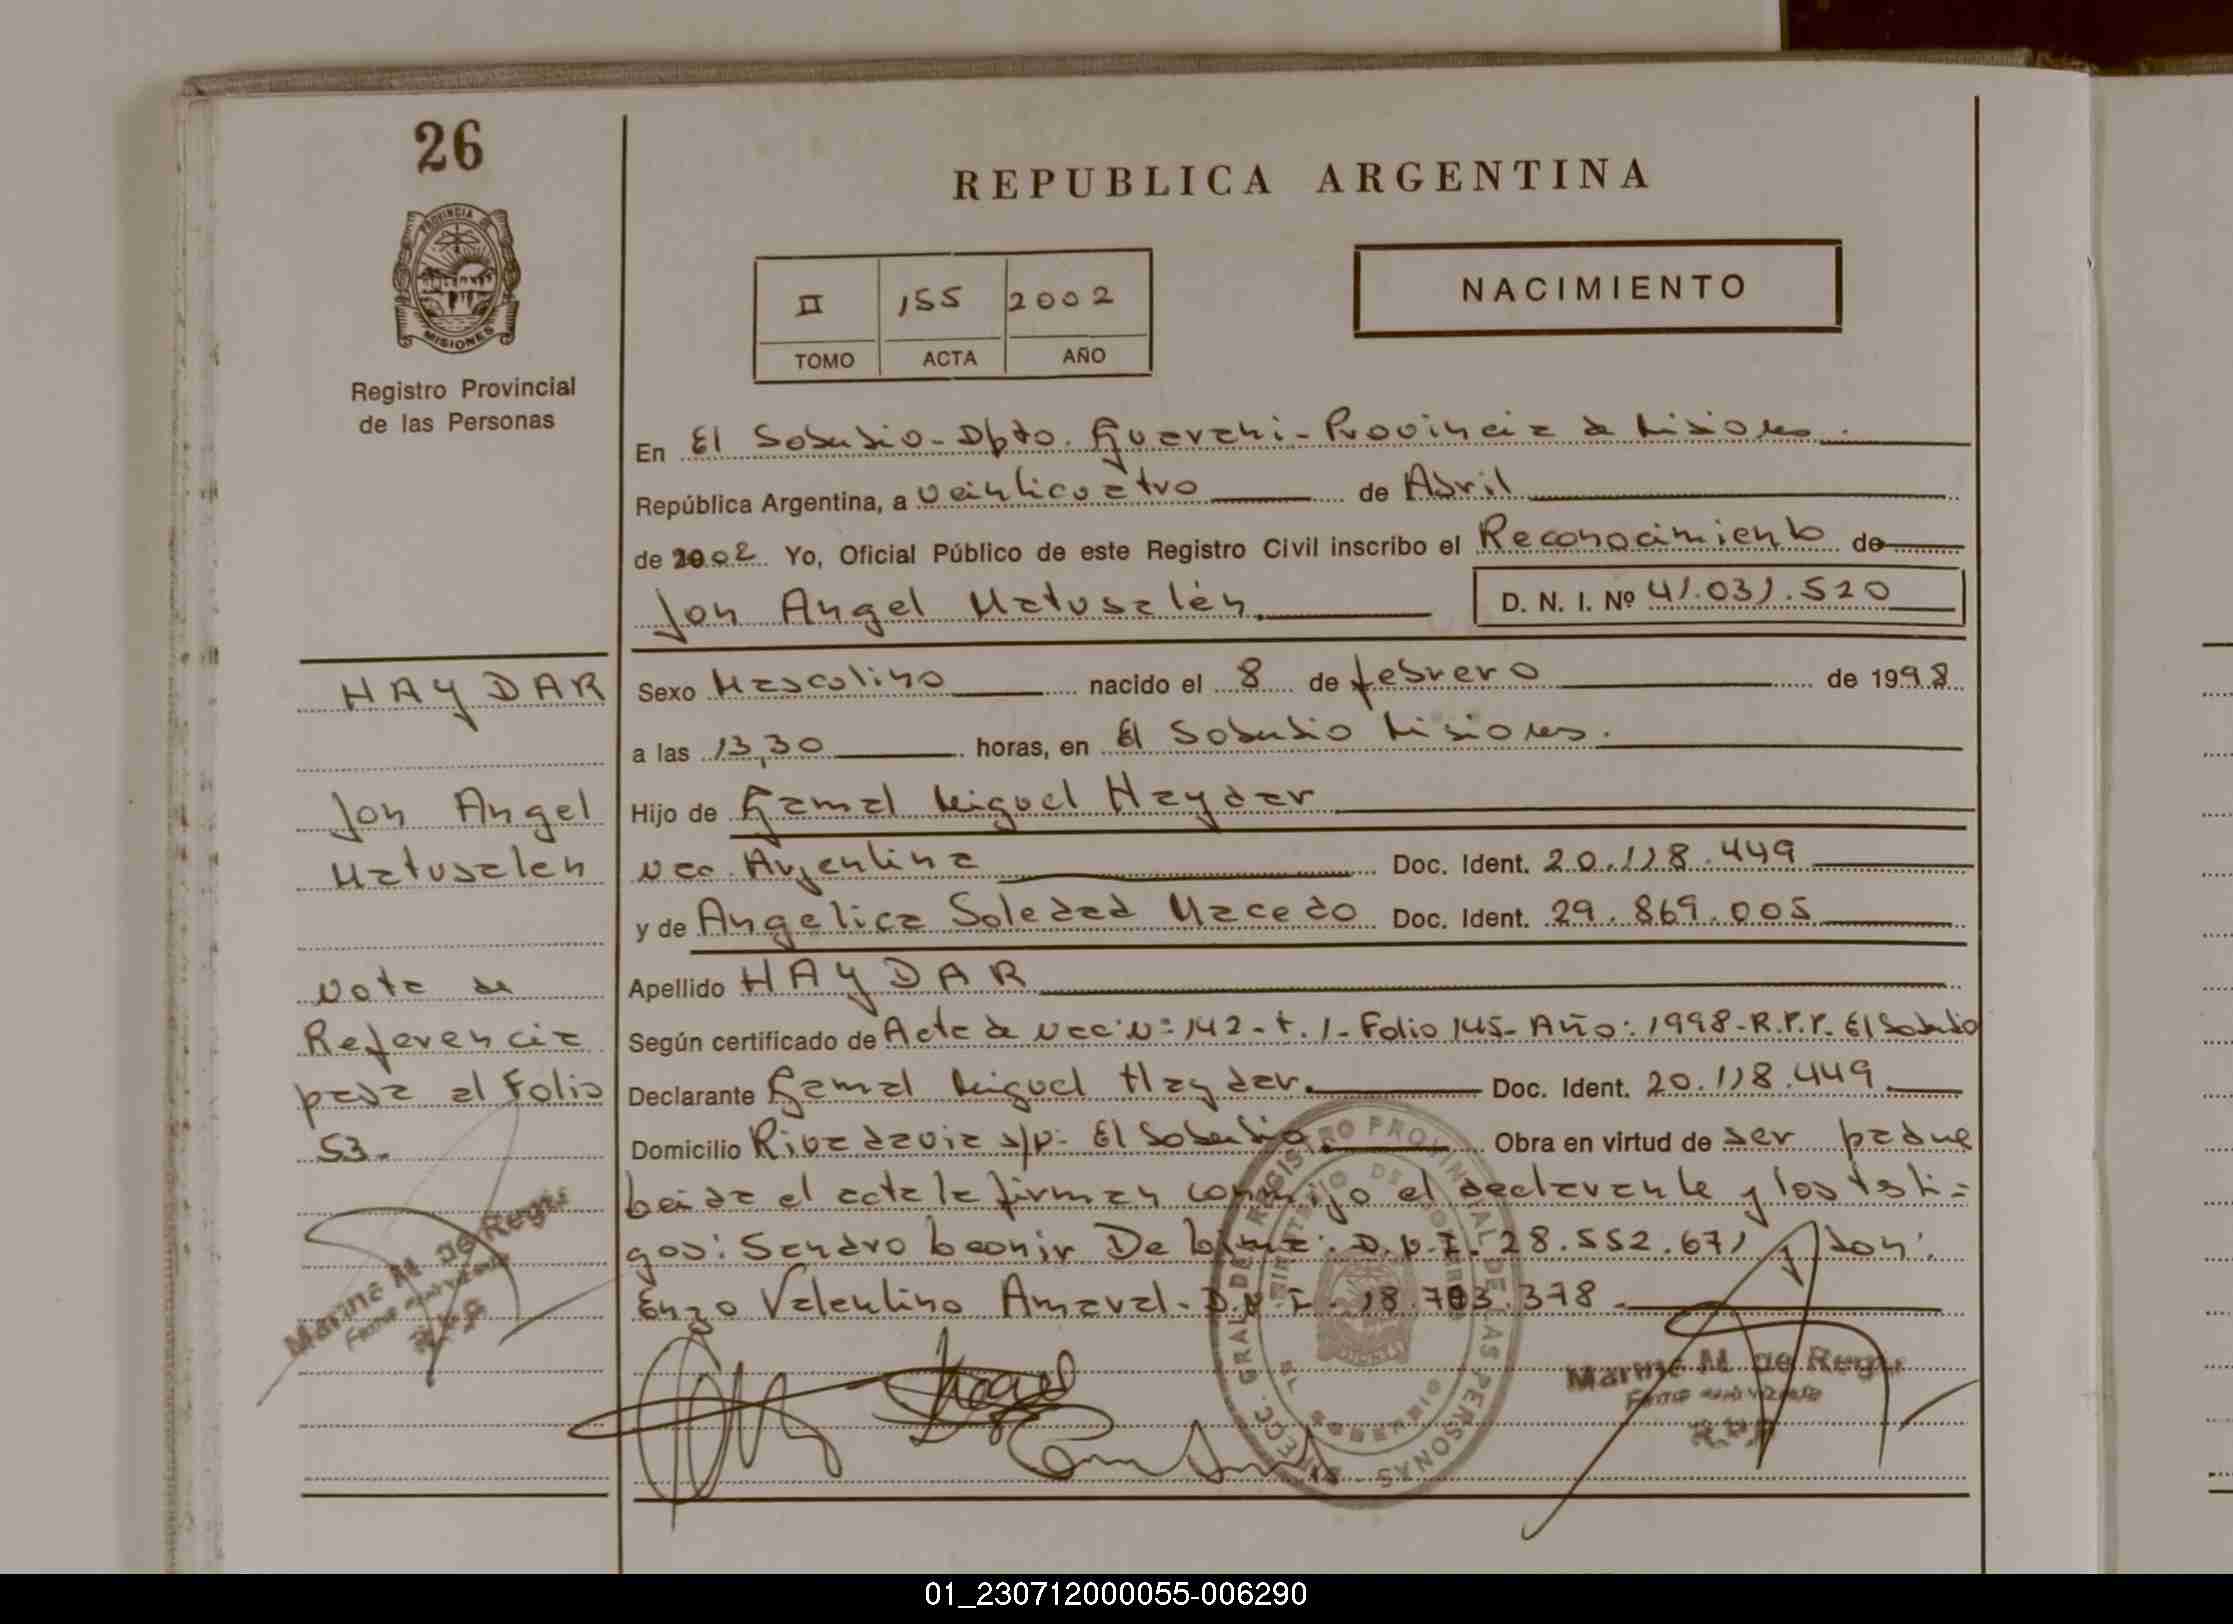 26
PROVINCIA DE
MISIONES
Registro Provincial
de las Personas
REPUBLICA ARGENTINA
II 155 2002
TOMO ACTA AÑO
NACIMIENTO
En El Soberbio - Dpto. Guarani - Provincia de Misiones.
República Argentina, a veinticuatro de Abril
de 2002 Yo, Oficial Público de este Registro Civil inscribo el Reconocimiento de
Jon Angel Matusalén. D. N. I. Nº 41.031.520
Sexo Masculino nacido el 8 de febrero de 1998
a las 13,30 horas, en El Soberbio Misiones.
Hijo de Gamal Miguel Haydar
nac. Argentina Doc. Ident. 20.118.449
y de Angelica Soledad Macedo Doc. Ident. 29.869.005
Apellido HAYDAR
Según certificado de Acta de nac. Nº 142 - t. 1 - Folio 145 - Año: 1998 - R.P.P. El Soberbio
Declarante Gamal Miguel Haydar. Doc. Ident. 20.118.449
Domicilio Rivadavia s/n: El Soberbio. Obra en virtud de ser padre
Leida el acta la firman conmigo el declarante y los testi=
gos: Sandro Leonir De Lima: D.N.I. 28.552.671 y Don:
Enzo Valentino Amaral - D.N.I. 18.703.378.
HAYDAR
Jon Angel
Matusalen
Nota de
Referencia
pasa al Folio
53.
Marina M. de Regis
R.P.P
DIRECC. GRAL DE REGISTRO PROVINCIAL DE LAS PERSONAS
MINISTERIO DE GOBIERNO
Marina M. de Regis
R.P.P
01_230712000055-006290